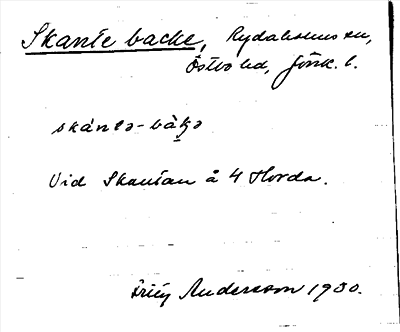 Skante backe, Rydaholms sn,
Östbo hd, Jönk. l.
skántə-bàkə
Vid Skantan å 4 Horda.
Andersson 1930.